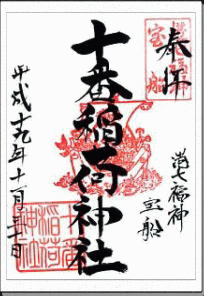 奉拝
港七福神
宝船
十番稲荷神社
平成十九年十一月三十日
宝船
十番
稲荷
神社